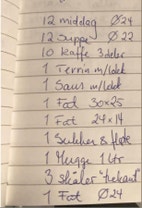 12 middag Ø24
12 suppe Ø22
10 kaffe 3 deler
1 Terrin m/lokk
1 Saus m/lokk
1 Fat 30x25
1 Fat 24x14
1 Sukker & fløte
1 Mugge 1 liter
3 skåler "trekant"
1 Fat Ø24